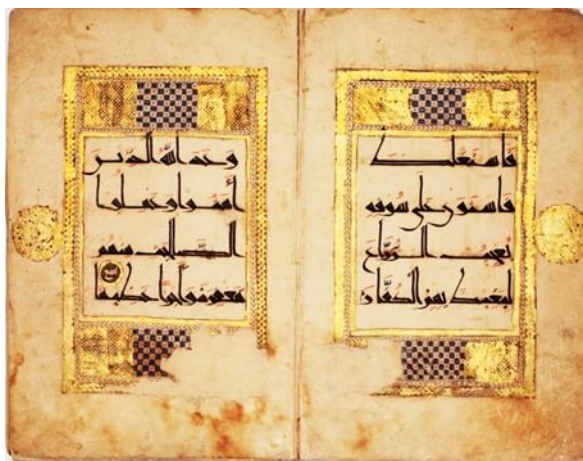 فاستغلظ
فاستوى على سوقه
يعجب الزراع
ليغيظ بهم الكفار
وعد الله الذين
أمنوا وعملوا
الصلحت منهم
مغفرة وأجرا عظيما